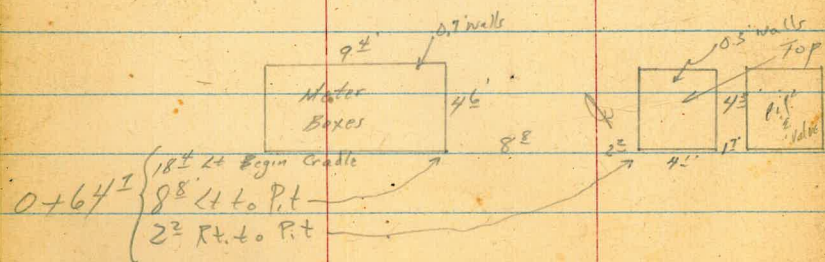 0.7' walls
9 4'
Meter
Boxes
4 6'
8 8
0.5' walls
Top
4 3
2 2
4
1 7
Pit
Valve
0+64 7
18 4 Lt Begin Cradle
8 8' Lt to Pit
2 2 Rt. to Pit